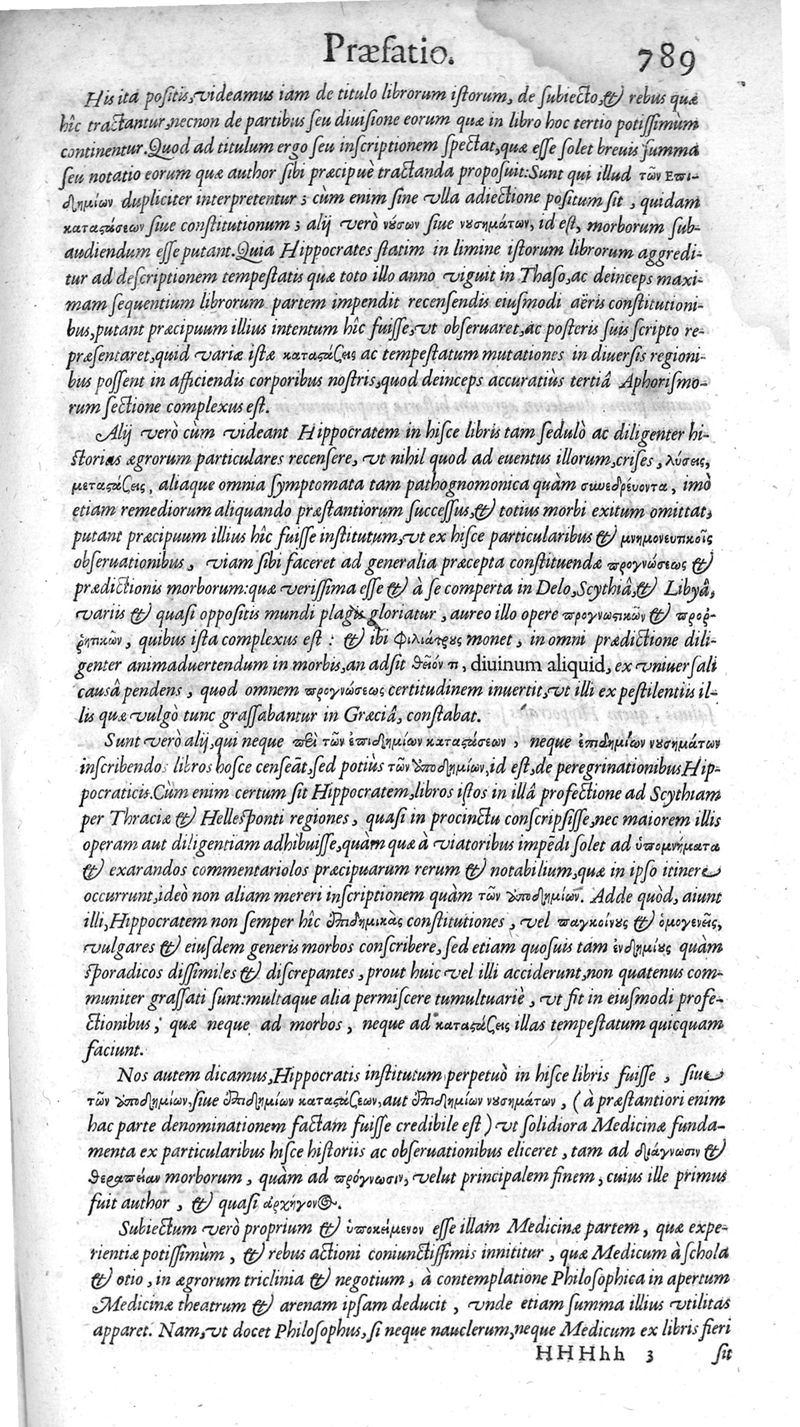 Præfatio. 789
His ita positis, videamus iam de titulo librorum istorum, de subiecto, & rebus quæ
hîc tractantur, necnon de partibus seu diuisione eorum quæ in libro hoc tertio potissimùm
continentur. Quod ad titulum ergo seu inscriptionem spectat, quæ esse solet breuis summa
seu notatio eorum quæ author sibi præcipuè tractanda proposuit: Sunt qui illud τῶν Ἐπι-
δημίων dupliciter interpretentur; cùm enim sine vlla adiectione positum sit, quidam
καταστάσεων siue constitutionum; alij verò νύσων siue νυσημάτων, id est, morborum sub-
audiendum esse putant. Quia Hippocrates statim in limine istorum librorum aggredi-
tur ad descriptionem tempestatis quæ toto illo anno viguit in Thaso, ac deinceps maxi-
mam sequentium librorum partem impendit recensendis eiusmodi aëris constitutioni-
bus, putant præcipuum illius intentum hîc fuisse, vt obseruaret, ac posteris suis scripto re-
præsentaret, quid variæ istæ καταστάσεις ac tempestatum mutationes in diuersis regioni-
bus possent in afficiendis corporibus nostris, quod deinceps accuratiùs tertiâ Aphorismo-
rum sectione complexus est.
Alij verò cùm videant Hippocratem in hisce libris tam sedulò ac diligenter hi-
storias ægrorum particulares recensere, vt nihil quod ad euentus illorum, crises, λύσεις,
μεταστάσεις, aliaque omnia symptomata tam pathognomonica quàm συνεδρεύοντα, imò
etiam remediorum aliquando præstantiorum successus, & totius morbi exitum omittat,
putant præcipuum illius hîc fuisse institutum, vt ex hisce particularibus & μνημονευτικοῖς
obseruationibus, viam sibi faceret ad generalia præcepta constituendæ προγνώσεως &
prædictionis morborum: quæ verissima esse & à se comperta in Delo, Scythiâ, & Libyâ,
variis & quasi oppositis mundi plagis gloriatur, aureo illo opere προγνωστικῶν & προῤ-
ῥητικῶν, quibus ista complexus est: & ibi φιλιάτρους monet, in omni prædictione dili-
genter animaduertendum in morbis, an adsit θεῖόν τι, diuinum aliquid, ex vniuersali
causâ pendens, quod omnem προγνώσεως certitudinem inuertit, vt illi ex pestilentiis il-
lis quæ vulgò tunc grassabantur in Græciâ, constabat.
Sunt verò alij, qui neque περὶ τῶν ἐπιδημίων καταστάσεων, neque ἐπιδημίων νυσημάτων
inscribendos libros hosce censeãt, sed potiùs τῶν ὑποδημίων, id est, de peregrinationibus Hip-
pocraticis. Cùm enim certum sit Hippocratem, libros istos in illâ profectione ad Scythiam
per Thraciæ & Hellesponti regiones, quasi in procinctu conscripsisse, nec maiorem illis
operam aut diligentiam adhibuisse, quàm quæ à viatoribus impẽdi solet ad ὑπομνήματα
& exarandos commentariolos præcipuarum rerum & notabilium, quæ in ipso itinere
occurrunt, ideò non aliam mereri inscriptionem quàm τῶν ὑποδημίων. Adde quòd, aiunt
illi, Hippocratem non semper hîc ἐπιδημικὰς constitutiones, vel παγκοίνους & ὁμογενεῖς,
vulgares & eiusdem generis morbos conscribere, sed etiam quosuis tam ἐνδημίους quàm
sporadicos dissimiles & discrepantes, prout huic vel illi acciderunt, non quatenus com-
muniter grassati sunt: multaque alia permiscere tumultuariè, vt fit in eiusmodi profe-
ctionibus, quæ neque ad morbos, neque ad καταστάσεις illas tempestatum quicquam
faciunt.
Nos autem dicamus, Hippocratis institutum perpetuò in hisce libris fuisse, siue
τῶν ὑποδημίων, siue ἐπιδημίων καταστάσεων, aut ἐπιδημίων νυσημάτων, (à præstantiori enim
hac parte denominationem factam fuisse credibile est) vt solidiora Medicinæ funda-
menta ex particularibus hisce historiis ac obseruationibus eliceret, tam ad διάγνωσιν &
θεραπείαν morborum, quàm ad πρόγνωσιν, velut principalem finem, cuius ille primus
fuit author, & quasi ἀρχηγον@.
Subiectum verò proprium & ὑποκείμενον esse illam Medicinæ partem, quæ expe-
rientiæ potissimùm, & rebus actioni coniunctissimis innititur, quæ Medicum à schola
& otio, in ægrorum triclinia & negotium, à contemplatione Philosophica in apertum
Medicinæ theatrum & arenam ipsam deducit, vnde etiam summa illius vtilitas
apparet. Nam, vt docet Philosophus, si neque nauclerum, neque Medicum ex libris fieri
HHHhh 3 sit